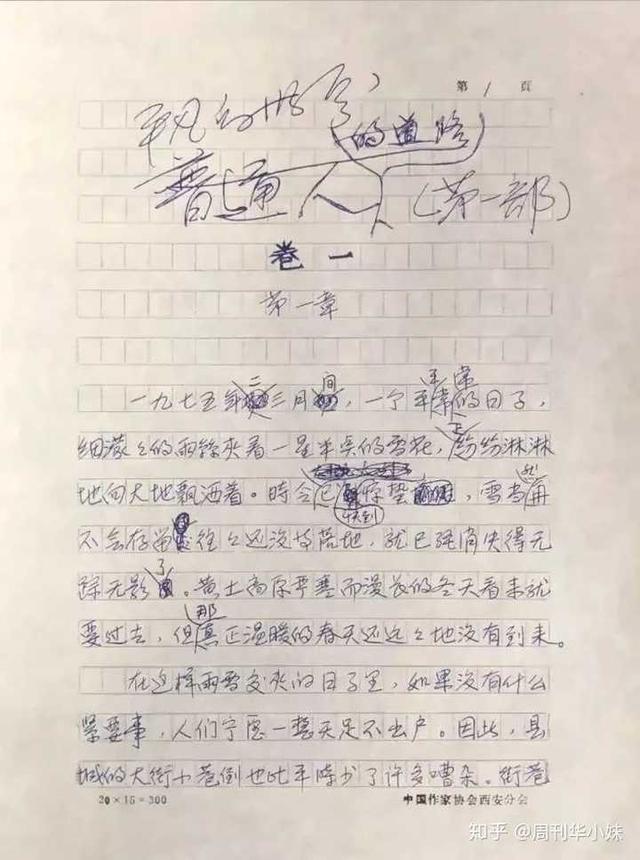 第 1 頁
平凡的世界
的道路
普通人（第一部）
卷一
第一章
一九七五年二三月间，一个平平常常的日子，
细濛々的雨絲夹着一星半点的雪花，正纷纷淋淋
地向大地飘洒着。時令已快到惊蛰，雪当然再
不会存留，往々还没等落地，就已经消失得无
踪无影了。黄土高原严寒而漫长的冬天看来就
要过去，但那真正温暖的春天还远々地没有到来。
在这样雨雪交夹的日子里，如果没有什么
紧要事，人们宁愿一整天足不出户。因此，县
城的大街小巷倒也比平時少了许多嘈杂。街巷
20×15=300 中国作家协会西安分会
知乎 @周刊华小妹